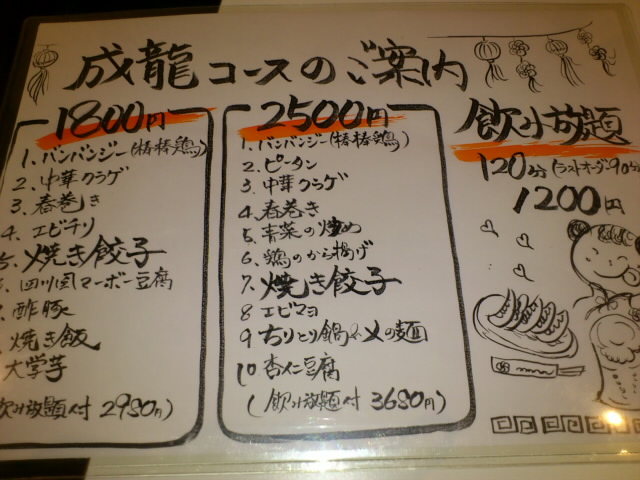 成龍コースのご案内
1800円
1、バンバンジー(椿椿鶏)
2、中華クラゲ
3、春巻き
4、エビチリ
5、焼き餃子
四川風マーボー豆腐
酢豚
焼き飯
大学芋
飲み放題付 2980円)
2500円
1、バンバンジー(椿椿鶏)
2、ピータン
3、中華クラゲ
4、春巻き
5、青菜の炒め
6、鶏のから揚げ
7、焼き餃子
8 エビマヨ
9 ちりとり鍋&〆の麺
10 杏仁豆腐
(飲み放題付 3680円)
飲み放題
120分(ラストオーダー90分)
1200円